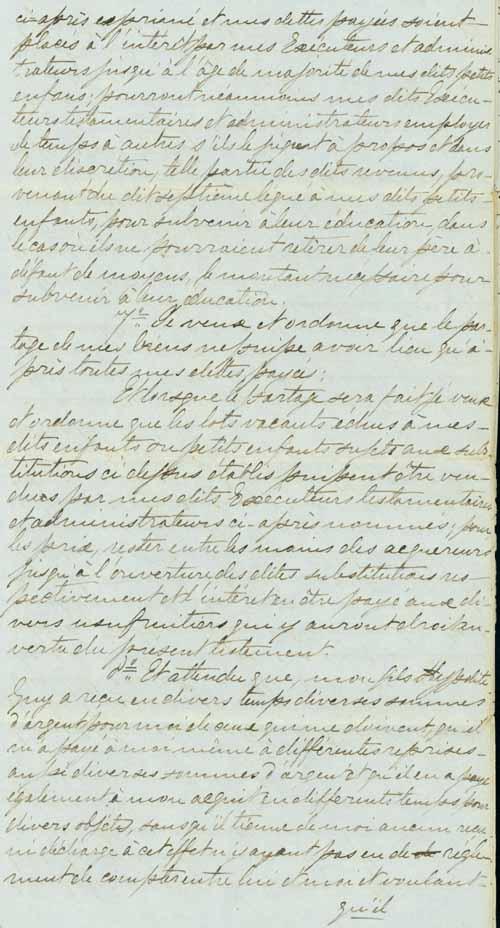 ci-après exprimé et mes dettes payées soient
placés à l'intérêt par mes Exécuteurs et adminis
trateurs jusqu'à l'âge de majorité de mes dits petits
enfans; pourront néanmoins mes dits Exécu-
teurs testamentaires et administrateurs employer
de temps à autres s'ils le jugent à propos et dans
leur discrétion, telle partie des dits revenus, pro-
venant du dit septième légué à mes dits petits
enfants, pour subvenir à leur education, dans
le cas où ils ne pourraient retirer de leur père à
défaut de moyens, le montant necessaire pour
subvenir à leur éducation.
7e Je veux et ordonne que le par-
tage de mes biens ne puisse avoir lieu qu'a-
près toutes mes dettes payées;
Et lorsque le partage sera fait je veux
et ordonne que les lots vacants échus à mes
dits enfants ou petits enfants sujets aux subs-
titutions ci dessus établis puissent être ven-
dues par mes dits Exécuteurs testamentaires
et administrateurs ci-après nommés; pour
les prix, rester entre les mains des acquereurs
jusqu'à l'ouverture des dites substitutions res-
pectivement et l'intéret en être payé aux di-
vers usufruitiers qui y auront droit en
vertu du présent testament.
8e Et attendu que, mon fils Hypolite
Guy a reçu en divers temps diverses sommes
d'argent pour moi de ceux qui me doivent, qu'il
m'a payé à moi même à différentes reprises
aussi diverses sommes d'argent et qu'il en a payé
également à mon acquit en différents temps pour
divers objets, sans qu'il tienne de moi aucun reçu
ni décharge à cet effet n'y ayant pas eu de regle-
ment de compte entre lui et moi et voulant
qu'il